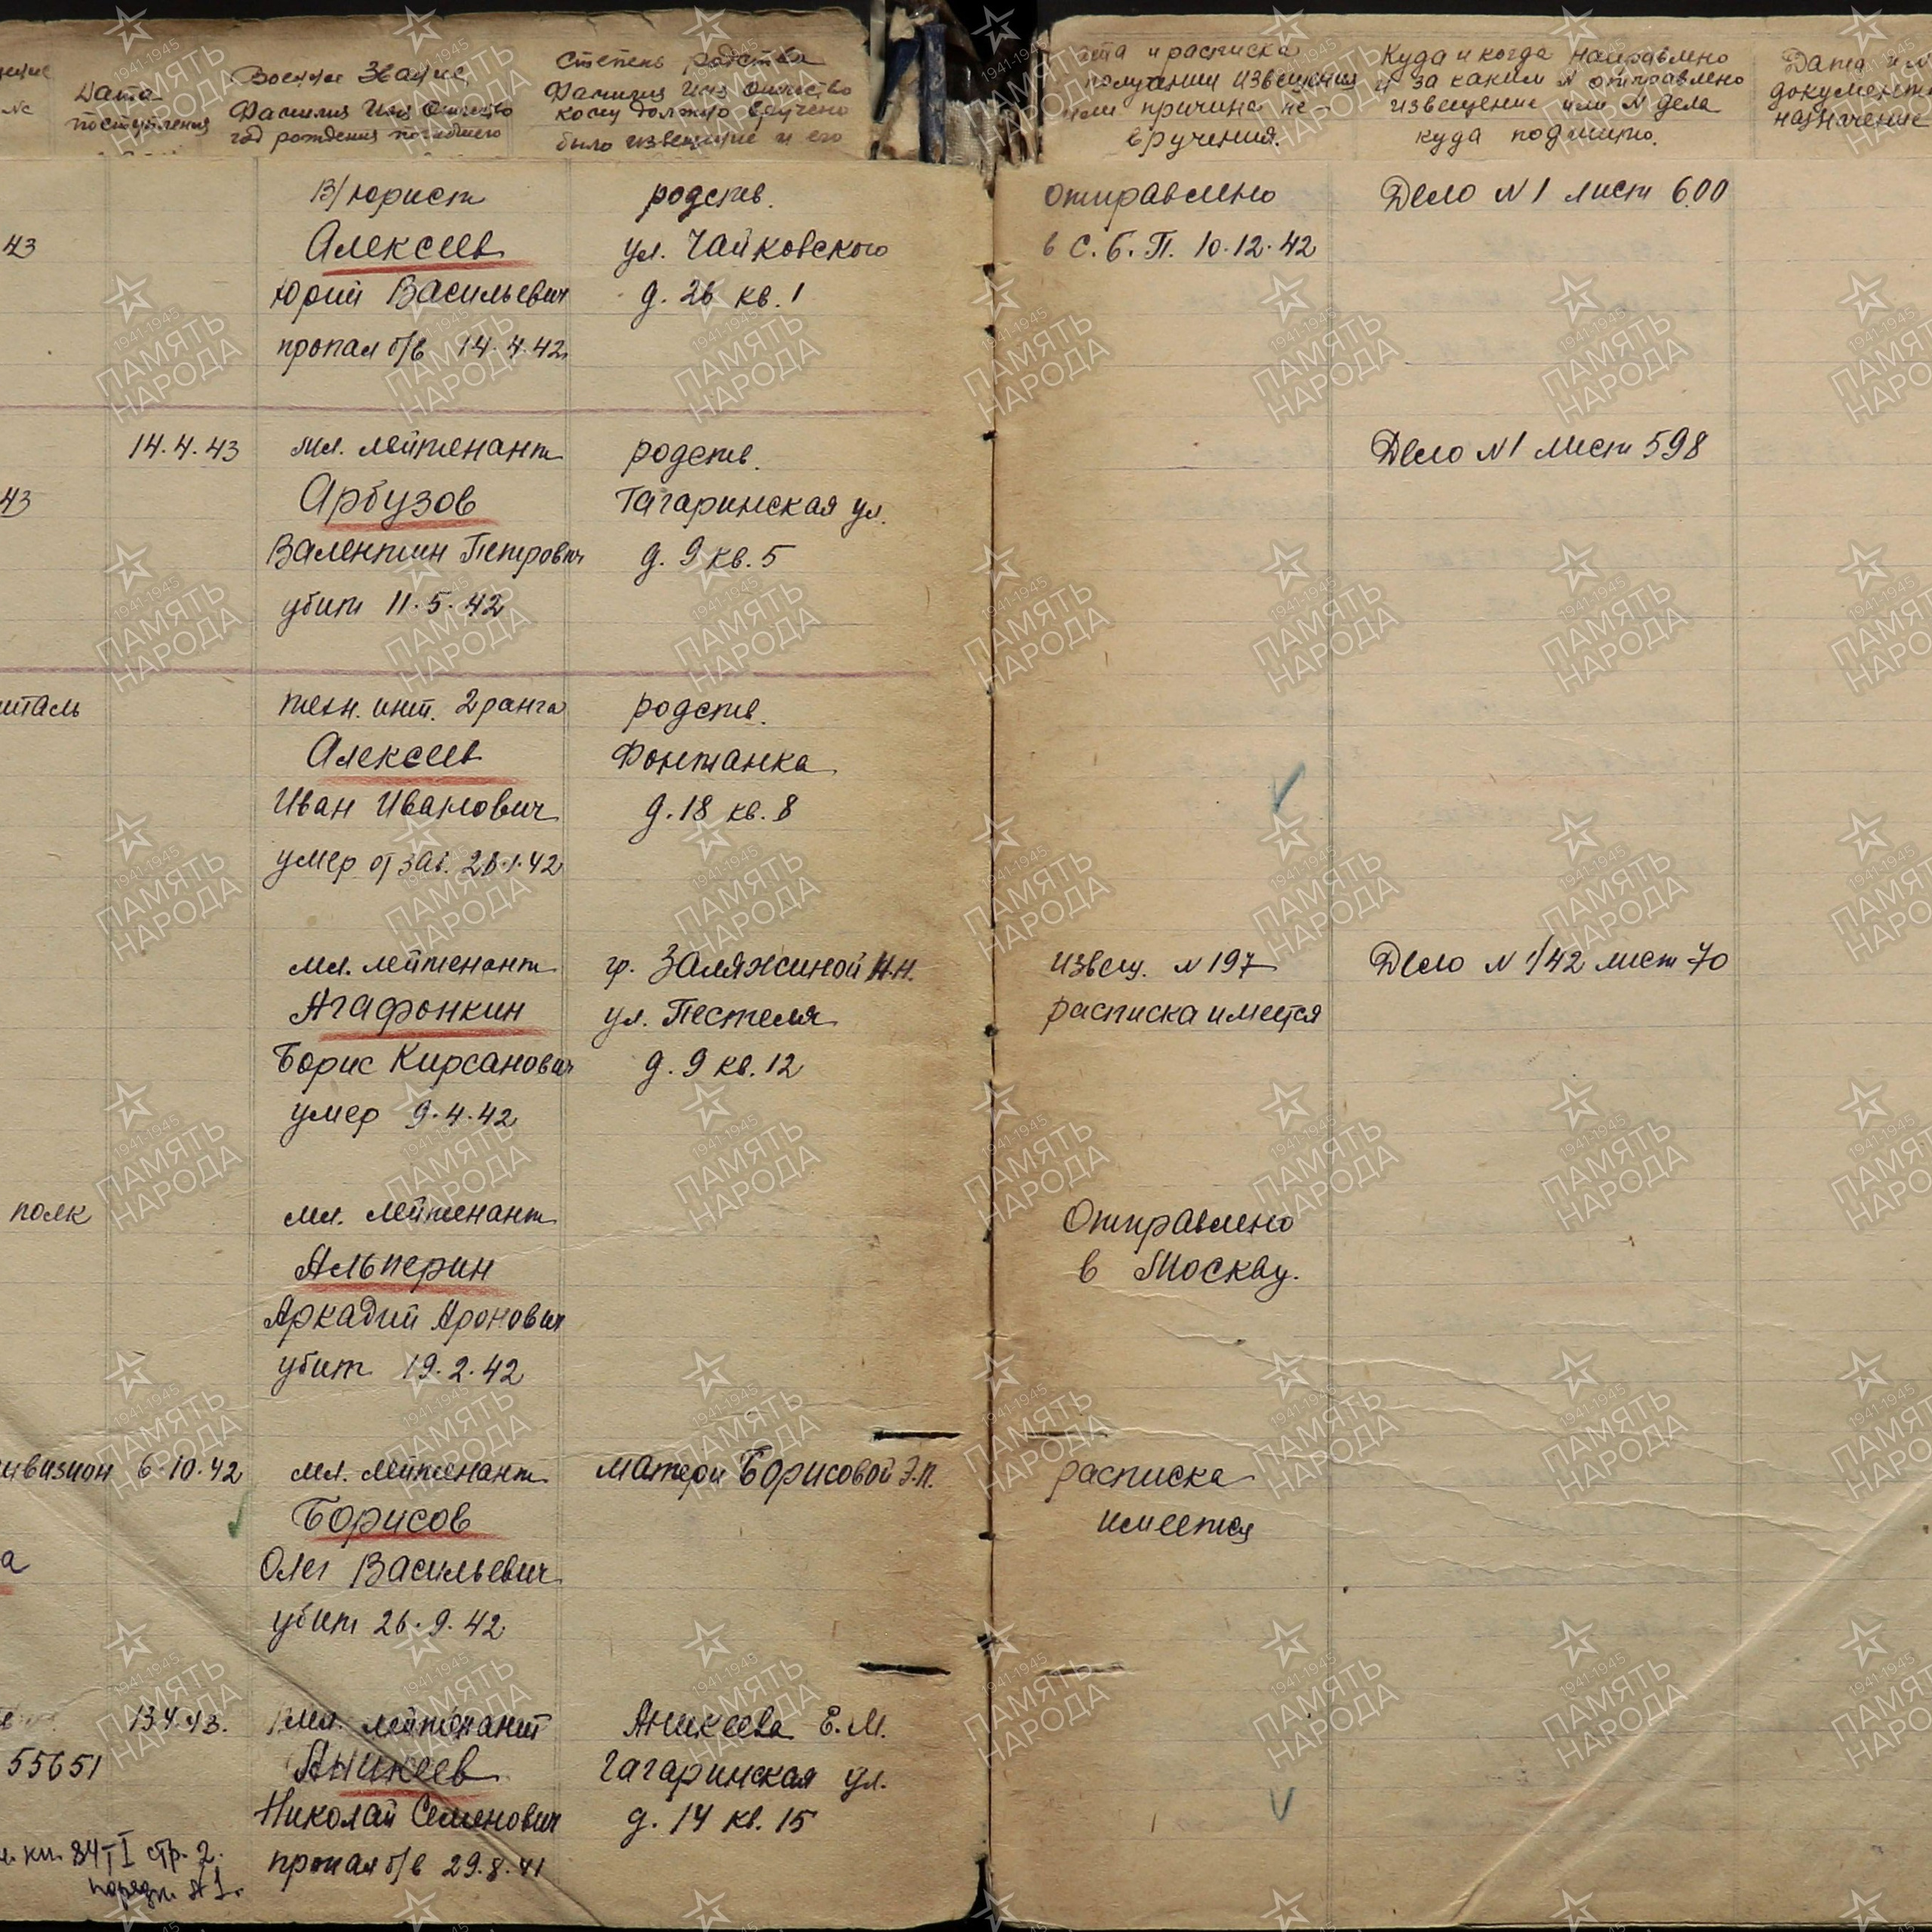 Дата
поступления
Военное Звание
Фамилия Имя Отчество
год рождения погибшего
Степень родства
Фамилия Имя Отчество
кому должно вручено
было извещение и его
и расписка
получении извещения
или причина не-
вручения.
Куда и когда направлено
и за каким N отправлено
извещение или N дела
куда подшито.
Дата и N
документа
назначение
В/юрист
родств.
отправлено
Дело N 1 лист 600
43
Алексеев
ул. Чайковского
в С.Б.П. 10.12.42
Юрий Васильевич
д. 26 кв. 1
пропал б/в 14.4.42
14.4.43
мл. лейтенант
родств.
Дело N 1 лист 598
43
Арбузов
Гагаринская ул.
Валентин Петрович
д. 9 кв. 5
убит 11.5.42
техн. инт. 2 ранга
родств.
Алексеев
Фонтанка
Иван Иванович
д. 18 кв. 8
умер от заб. 26.1.42
мл. лейтенант
гр. Заляжиной Н.Н.
извещ. N 197
Дело N 1/42 лист 70
Агафонкин
ул. Пестеля
расписка имеется
Борис Кирсанович
д. 9 кв. 12
умер 9.4.42
полк
мл. лейтенант
Отправлено
Альперин
в Москву.
Аркадий Аронович
убит 19.2.42
ивизион
6.10.42
мл. лейтенант
матери Борисовой Э.П.
расписка
Борисов
имеется
а
Олег Васильевич
убит 26.9.42
13.4.43.
мл. лейтенант
Аникеева Е.М.
55651
Аникеев
Гагаринская ул.
Николай Семенович
д. 14 кв. 15
кн. 84 т I стр. 2.
пропал б/в 29.8.41
порядк. № 1.
1941-1945
ПАМЯТЬ
НАРОДА